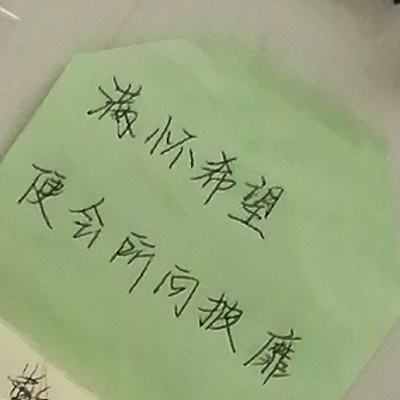 满怀希望
便会所向披靡